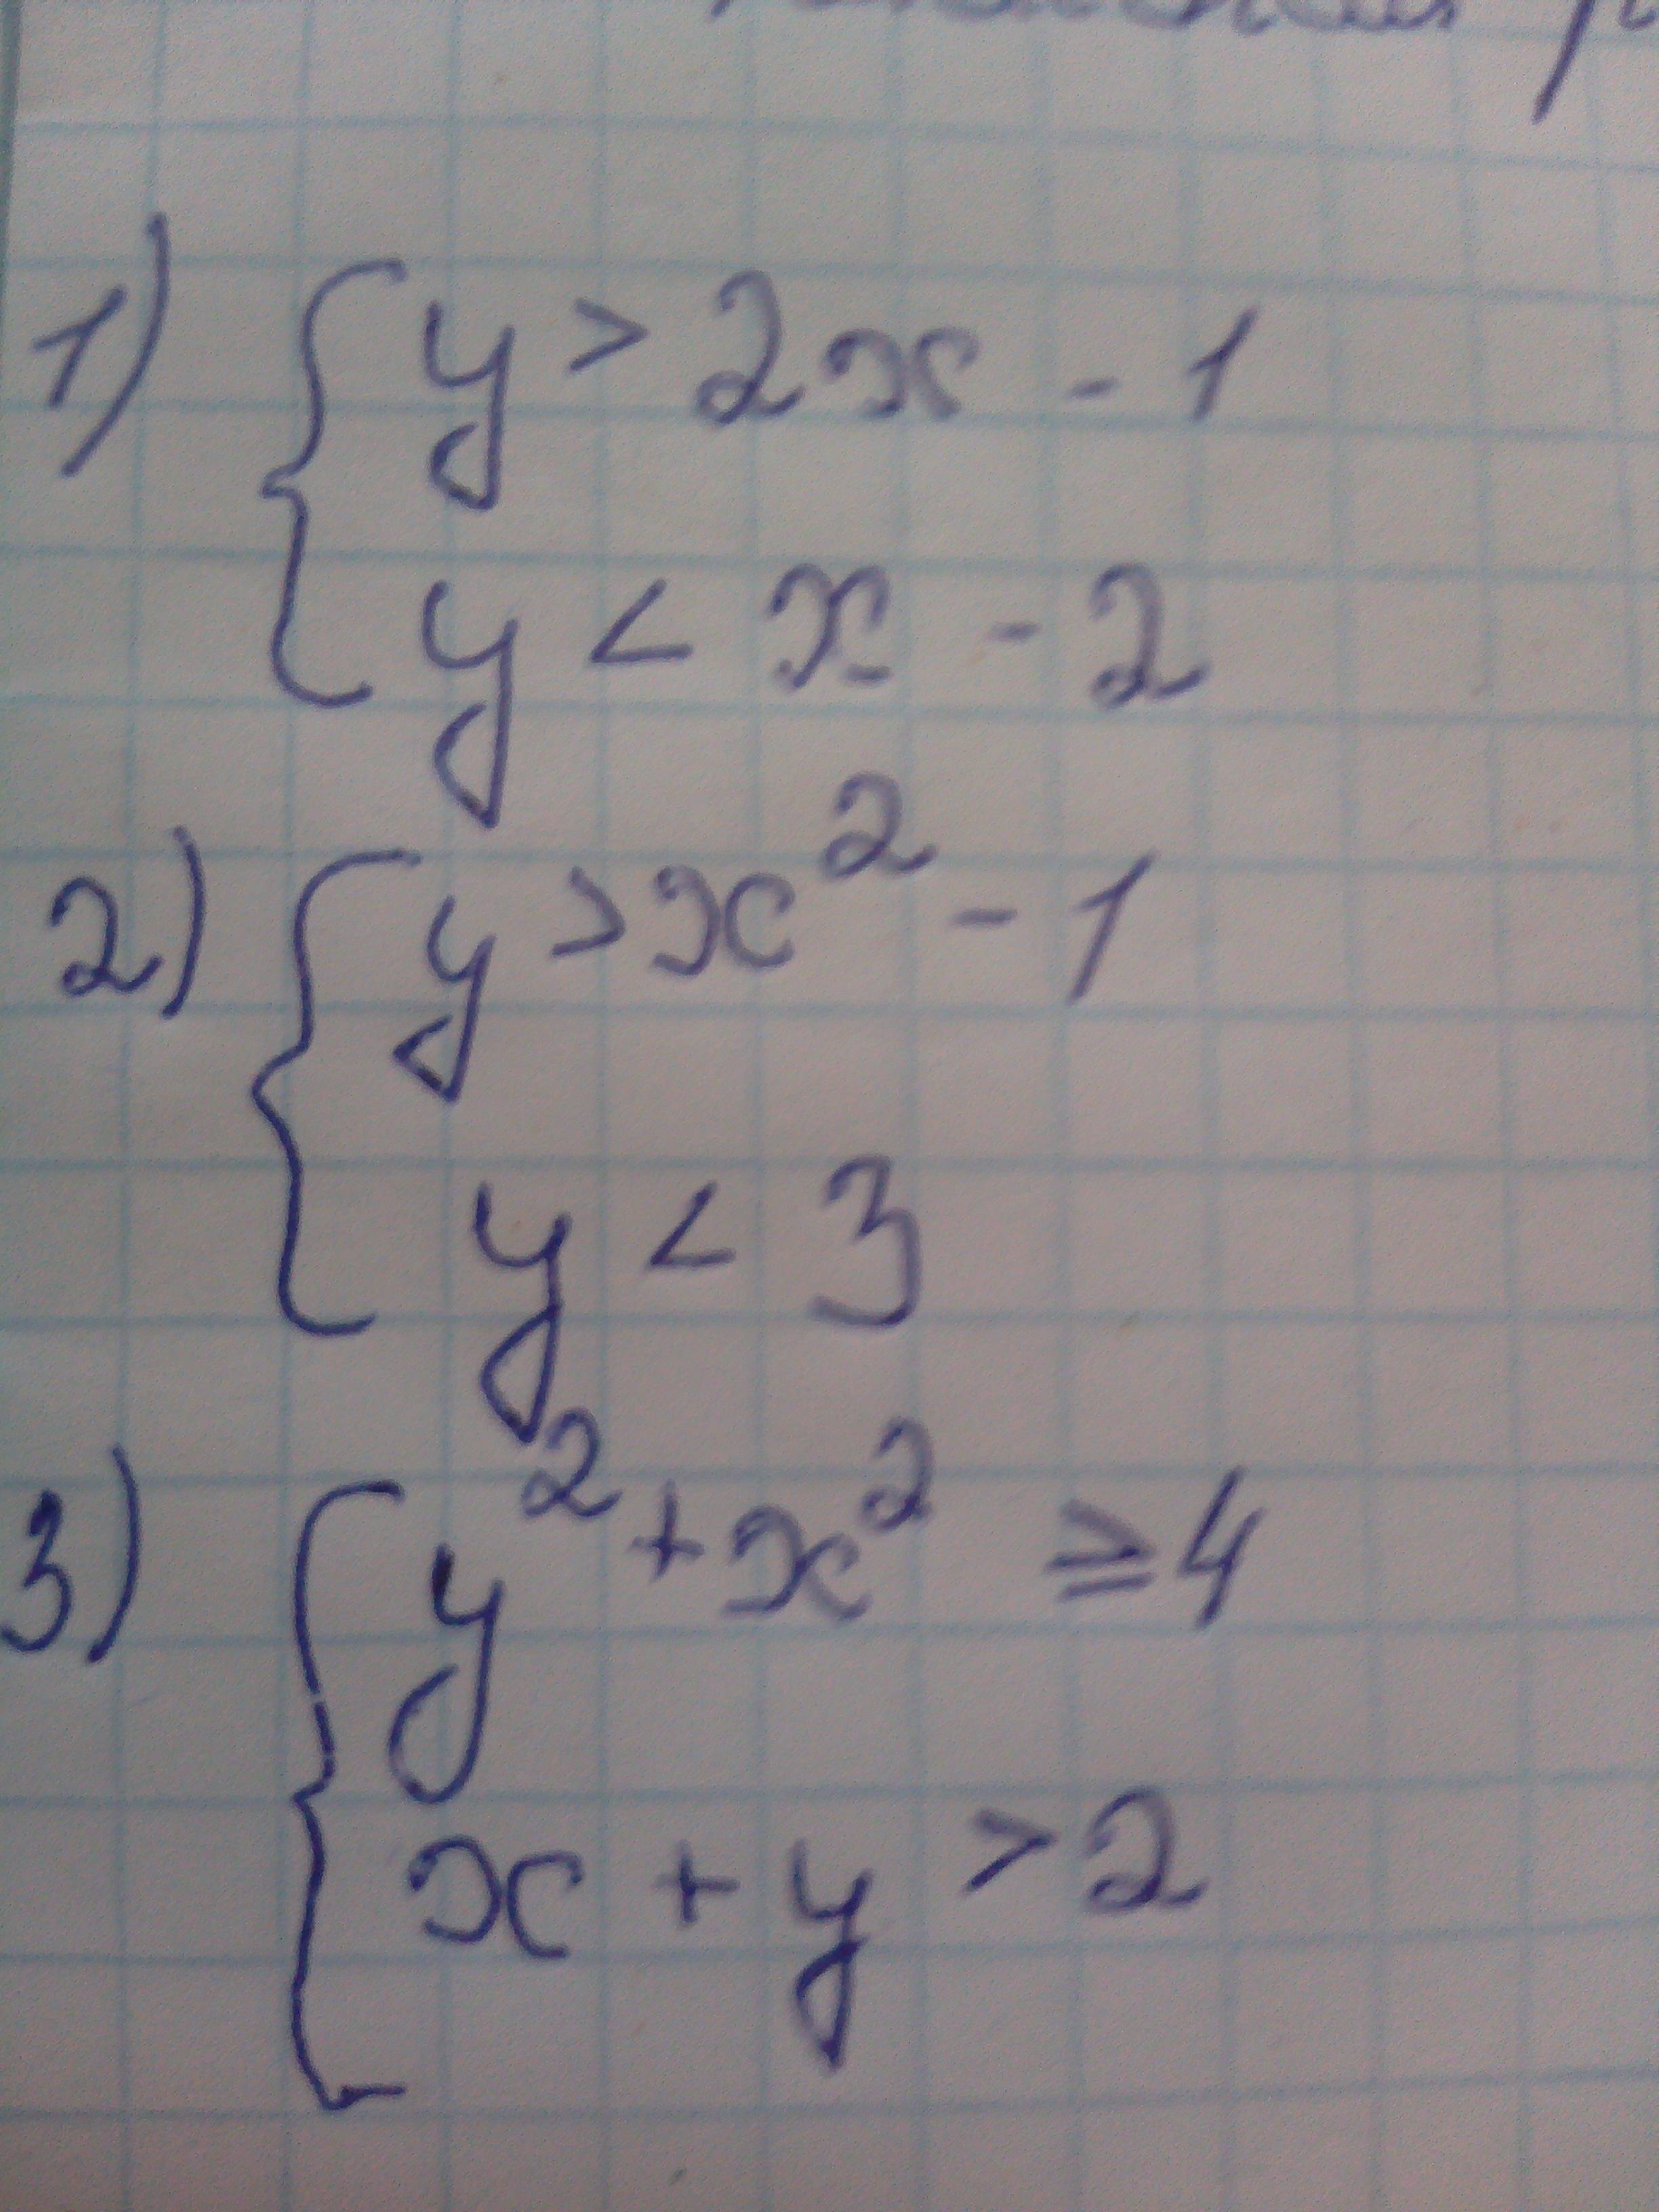 1) { y > 2x - 1
y < x - 2
2) { y > x² - 1
y < 3
3) { y² + x² ≥ 4
x + y > 2